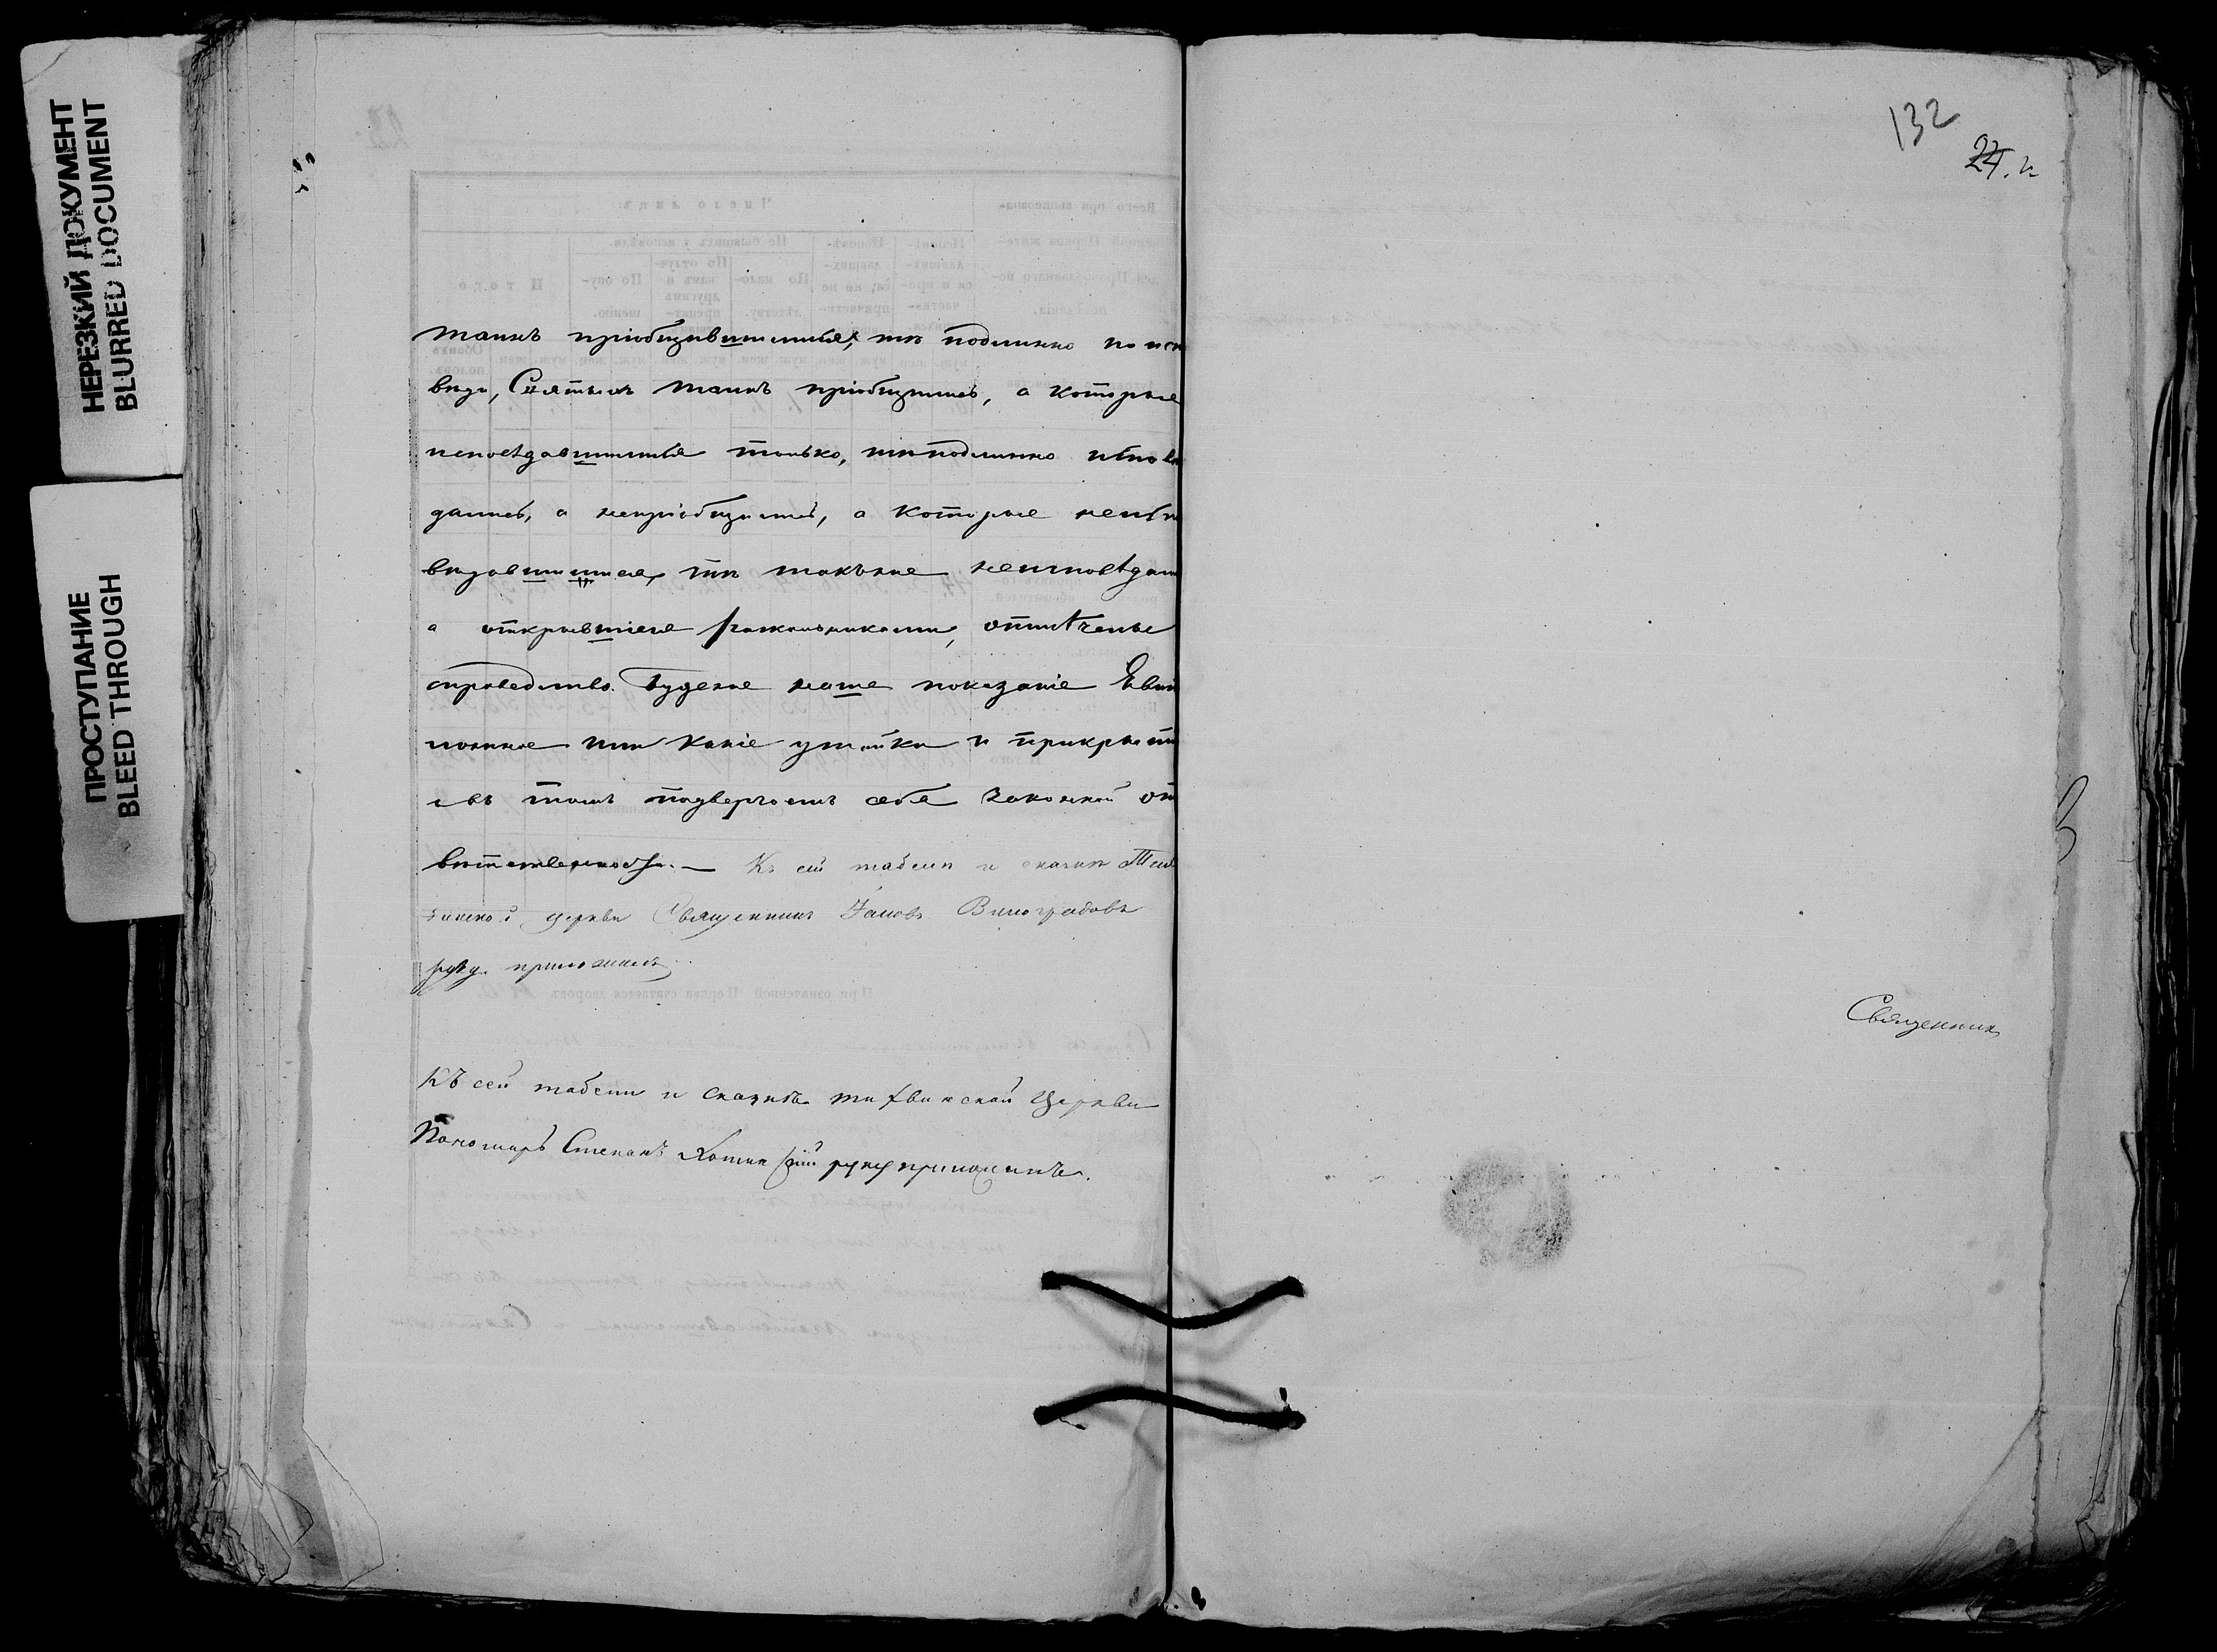 НЕРЕЗКИЙ ДОКУМЕНТ
BLURRED DOCUMENT
ПРОСТУПАНИЕ
BLEED THROUGH
132
24.
таинъ пріобщившимися, тѣ подлинно по испо
вѣди, Святыхъ таинъ пріобщились, а которые
исповѣдавшимися только, тѣ подлинно испов
дались, а непріобщились, а которые неиспо
вѣдавшимися, тѣ такъ же неисповѣдали
а открывшіеся раскольниками, отмѣчены
справедливо. Буде же наше показаніе
ложное или какіе утайки и прикрыті
въ томъ подвергаемъ себя законной от
вѣтственности. — Къ сей табели и сказкѣ Тих
винской церкви Священникъ Іаковъ Виноградовъ
руку приложилъ.
Къ сей табели и сказкѣ тихвинской Церкви
Пономарь Степанъ руку приложилъ.
Священник